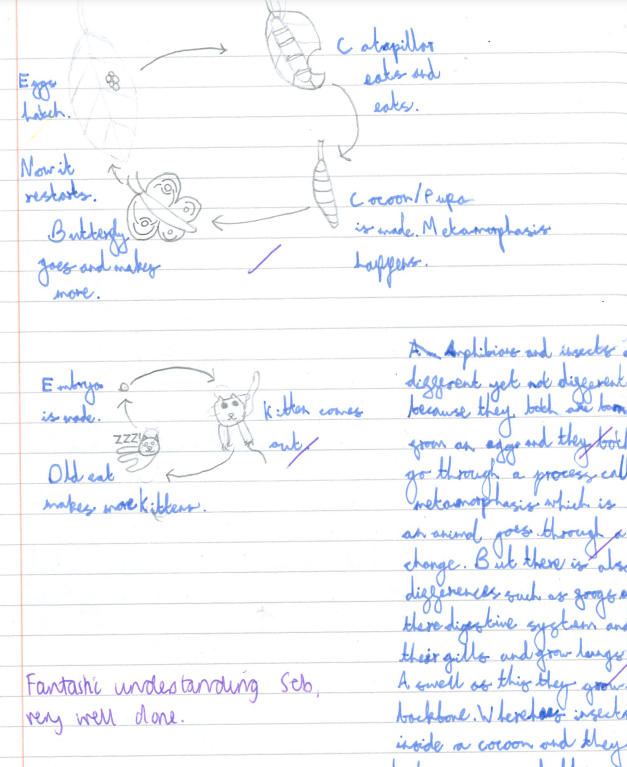 Catapillar
eats and
eats.
Eggs
hatch.
Now it
restarts.
Butterfly
goes and makes
more.
Cocoon/Pupa
is made. Metamorphasis
happens.
Embryo
is made.
ZZZ
Kitten comes
out.
Old cat
makes more Kittens.
A Amphibians and insects
different yet not different
because they both are born
from an egg and they both
go through a process call
metamorphasis which is
an animal goes through a
change. But there is also
differences such as frogs
there digestive system and
their gills and grow lungs
A swell as this they grow
backbone. Whereas insects
inside a cocoon and they
Fantastic understanding Seb,
very well done.